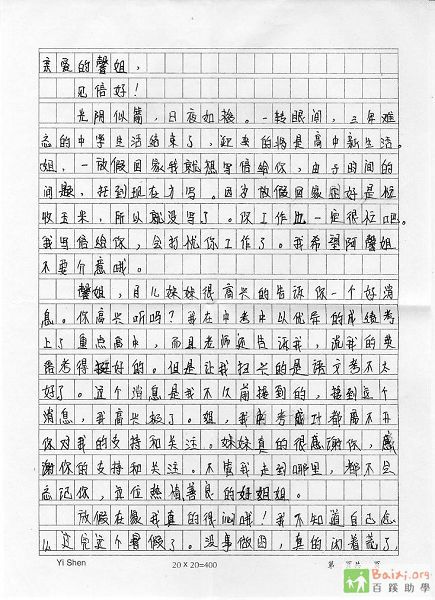 亲爱的馨姐，
见信好！
光阴似箭，日夜如梭。一转眼间，三年难
忘的中学生活结束了，迎来的将是高中新生活。
姐，一放假回家我就想写信给你，由于时间的
问题，拖到现在才写。因为放假回家正好是忙
收玉米，所以就没写了。你工作也一定很忙吧。
我写信给你，会打扰你工作了。我希望阿馨姐
不要介意哦。
馨姐，月儿妹妹很高兴的告诉你一个好消
息。你高兴听吗？我在中考中以优异的成绩考
上了重点高中，而且老师还告诉我，说我的英
语考得挺好的。但是让我扫兴的是语文考不太
好了。这个消息是我不久前接到的，接到这个
消息，我高兴极了。姐，我的考成功都离不开
你对我的支持和关注。妹妹真的很感谢你，感
谢你的支持和关注。不管我走到哪里，都不会
忘记你，这位热情善良的好姐姐。
放假在家我真的很闷哦！我不知道自己怎
么过完这个暑假了。没事做的，真的闲着慌了，
Yi Shen
20×20=400
第 页 共 页
Baixi.org
百蹊助學